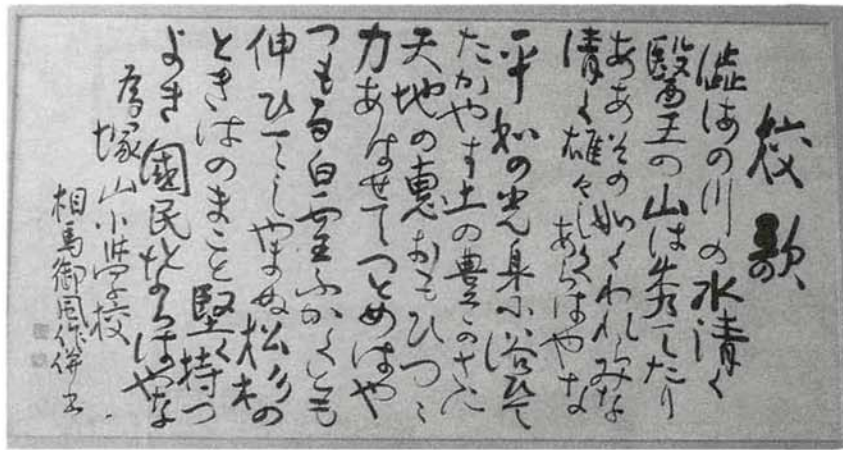 校歌
澁海の川の水清く
醫王の山は秀てたり
ああその如くわれらみな
清く雄々しくあらはやな
平和の光身に浴ひて
たかやす土の豊かさに
天地の恵おもひつゝ
力あはせてつとめはや
つもる白雪ふかくとも
伸ひてしやまぬ松杉の
ときはのまこと堅く持つ
よき國民とならはやな
為塚山小學校
相馬御風作併書